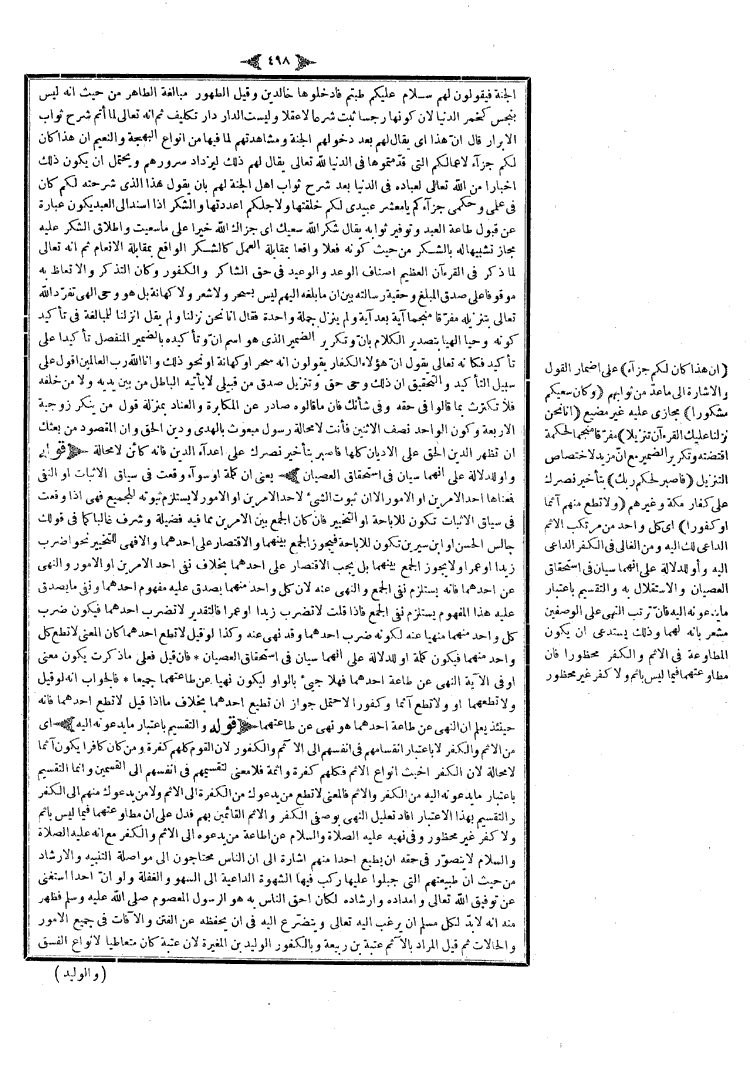 ٤٩٨
الجنة فيقولون لهم سلام عليكم طبتم فادخلوها خالدين وقيل الطهور مبالغة الطاهر من حيث انه ليس
بنجس كخمر الدنيا لان كونها رجسا ثبت شرعا لاعقلا وليست الدار دار تكليف ثم انه تعالى لما أتم شرح ثواب
الابرار قال ان هذا اى يقال لهم بعد دخولهم الجنة ومشاهدتهم لما فيها من انواع البهجة والنعيم ان هذا كان
لكم جزآء لاعمالكم التى قدمتموها فى الدنيا لله تعالى يقال لهم ذلك ليزداد سرورهم ويحتمل ان يكون ذلك
اخبارا من الله تعالى لعباده فى الدنيا بعد شرح ثواب اهل الجنة لهم بان يقول هذا الذى شرحته لكم كان
فى علمى وحكمى جزآءكم يامعشر عبيدى لكم خلقتها ولاجلكم اعددتها والشكر اذا اسند الى العبد يكون عبارة
عن قبول طاعة العبد وتوفير ثوابه يقال شكر الله سعيك اى جزاك الله خيرا على ماسعيت واطلاق الشكر عليه
مجاز تشبيها له بالشكر من حيث كونه فعلا واقعا بمقابلة العمل كالشكر الواقع بمقابلة الانعام ثم انه تعالى
لما ذكر فى القرءآن العظيم اصناف الوعد والوعيد فى حق الشاكر والكفور وكان التذكر والاتعاظ به
موقوفا على صدق المبلغ وحقية رسالته بين ان مابلغه اليهم ليس بسحر ولاشعر ولا كهانة بل هو وحى الهى تفرد الله
تعالى بتنزيله مفرقا منجما آية بعد آية ولم ينزل جملة واحدة فقال انا نحن نزلنا ولم يقل انزلنا للمبالغة فى تأكيد
كونه وحيا الهيا بتصدير الكلام بان وتكرير الضمير الذى هو اسم ان وتأكيده بالضمير المنفصل تأكيدا على
تأكيد فكأنه تعالى يقول ان هؤلاء الكفار يقولون انه سحر او كهانة او نحو ذلك وانا الله رب العالمين اقول على
سبيل التأكيد والتحقيق ان ذلك وحى حق وتنزيل صدق من قبلى لايأتيه الباطل من بين يديه ولا من خلفه
فلا تكترث بما قالوا فى حقه وفى شأنك فان ماقالوه صادر عن المكابرة والعناد بمنزلة قول من ينكر زوجية
الاربعة وكون الواحد نصف الاثنين فأنت لامحالة رسول مبعوث بالهدى ودين الحق وان المقصود من بعثك
ان تظهر الدين الحق على الاديان كلها فاصبر بتأخير نصرك على اعدآء الدين فانه كائن لامحالة قوله
واو للدلالة على انهما سيان فى استحقاق العصيان يعنى ان كلمة او سوآء وقعت فى سياق الاثبات او النفى
فعناها احد الامرين او الامور الا ان ثبوت الشئ لاحد الامرين او الامور لايستلزم ثبوته للجميع فهى اذا وقعت
فى سياق الاثبات تكون للاباحة او التخيير فان كان الجمع بين الامرين مما فيه فضيلة وشرف غالبا كما فى قولك
جالس الحسن او ابن سيرين تكون للاباحة فيجوز الجمع بينهما والاقتصار على احدهما والافهى للتخيير نحو اضرب
زيدا او عمرا ولايجوز الجمع بينهما بل يجب الاقتصار على احدهما بخلاف نفى احد الامرين او الامور والنهى
عن احدهما فانه يستلزم نفى الجمع والنهى عنه لان كل واحد منهما يصدق عليه مفهوم احدهما ونفى مايصدق
عليه هذا المفهوم يستلزم نفى الجمع فاذا قلت لاتضرب زيدا او عمرا فالتقدير لاتضرب احدهما فيكون ضرب
كل واحد منهما منهيا عنه لكونه ضرب احدهما وقد نهى عنه وكذا لو قيل لاتطع احدهما كان المعنى لاتطع كل
واحد منهما فيكون كلمة او للدلالة على انهما سيان فى استحقاق العصيان * فان قيل فعلى ماذكرت يكون معنى
او فى الآية النهى عن طاعة احدهما فهلا جيئ بالواو ليكون نهيا عن طاعتهما جميعا * فالجواب انه لو قيل
ولاتطعهما او ولاتطع آثما وكفورا لاحتمل جواز ان تطيع احدهما بخلاف ما اذا قيل لاتطع احدهما فانه
حينئذ يعلم ان النهى عن طاعة احدهما هو نهى عن طاعتهما قوله والتقسيم باعتبار مايدعونه اليه اى
من الاثم والكفر لاباعتبار انقسامهم فى انفسهم الى الآثم والكفور لان القوم كلهم كفرة ومن كان كافرا يكون آثما
لامحالة لان الكفر اخبث انواع الاثم فكلهم كفرة واثمة فلامعنى لتقسيمهم فى انفسهم الى القسمين وانما التقسيم
باعتبار مايدعونه اليه من الكفر والاثم فالمعنى لاتطع من يدعوك من الكفرة الى الاثم ولامن يدعوك منهم الى الكفر
والتقسيم بهذا الاعتبار افاد تعليل النهى بوصفى الكفر والاثم القائمين بهم فدل على ان مطاوعتهما فيما ليس باثم
ولا كفر غير محظور وفى نهيه عليه الصلاة والسلام عن اطاعة من يدعوه الى الاثم والكفر مع انه عليه الصلاة
والسلام لايتصور فى حقه ان يطيع احدا منهم اشارة الى ان الناس محتاجون الى مواصلة التنبيه والارشاد
من حيث ان طبيعتهم التى جبلوا عليها ركب فيها الشهوة الداعية الى السهو والغفلة ولو ان احدا استغنى
عن توفيق الله تعالى وامداده وارشاده لكان احق الناس به هو الرسول المعصوم صلى الله عليه وسلم فظهر
منه انه لابد لكل مسلم ان يرغب اليه تعالى ويتضرع اليه فى ان يحفظه عن الفتن والآفات فى جميع الامور
والحالات ثم قيل المراد بالآثم عتبة بن ربيعة وبالكفور الوليد بن المغيرة لان عتبة كان متعاطيا لانواع الفسق
(والوليد)
(ان هذا كان لكم جزآء) على اضمار القول
والاشارة الى ماعد من ثوابهم (وكان سعيكم
مشكورا) مجازى عليه غير مضيع (انا نحن
نزلنا عليك القرءآن تنزيلا) مفرقا منجما لحكمة
اقتضته وتكرير الضمير مع ان مزيد لاختصاص
التنزيل (فاصبر لحكم ربك) بتأخير نصرك
على كفار مكة وغيرهم (ولاتطع منهم آثما
او كفورا) اى كل واحد من مرتكب الاثم
الداعى لك اليه ومن الغالى فى الكفر الداعى
اليه واو للدلالة على انهما سيان فى استحقاق
العصيان والاستقلال به والتقسيم باعتبار
مايدعونه اليه فان ترتب النهى على الوصفين
مشعر بانه لهما وذلك يستدعى ان يكون
المطاوعة فى الاثم والكفر محظورا فان
مطاوعتهما فيما ليس باثم ولا كفر غير محظور